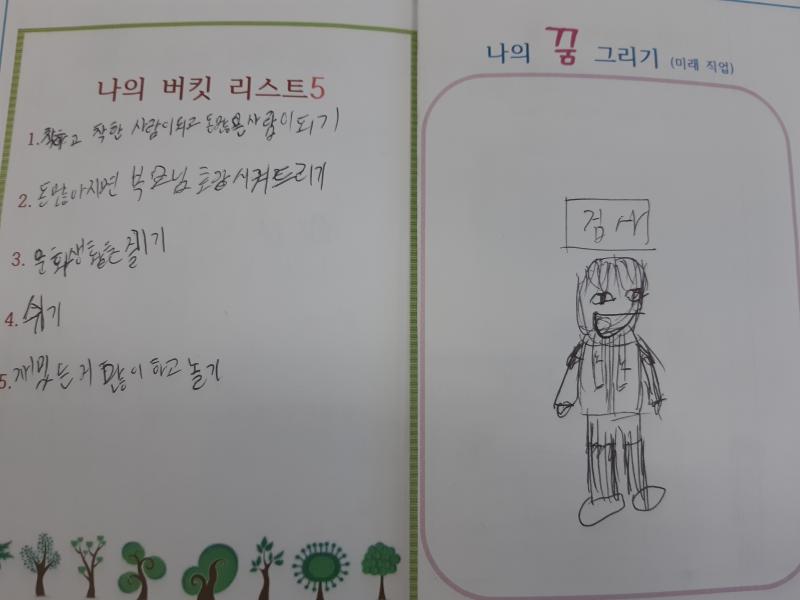 나의 버킷 리스트5
1. 착한 사람이되고 돈많은사람이되기
2. 돈많아지면 부모님 호강시켜드리기
3. 문화생활을 즐기기
4. 쉬기
5. 재밌는거 많이하고 놀기
나의 꿈 그리기 (미래 직업)
검사